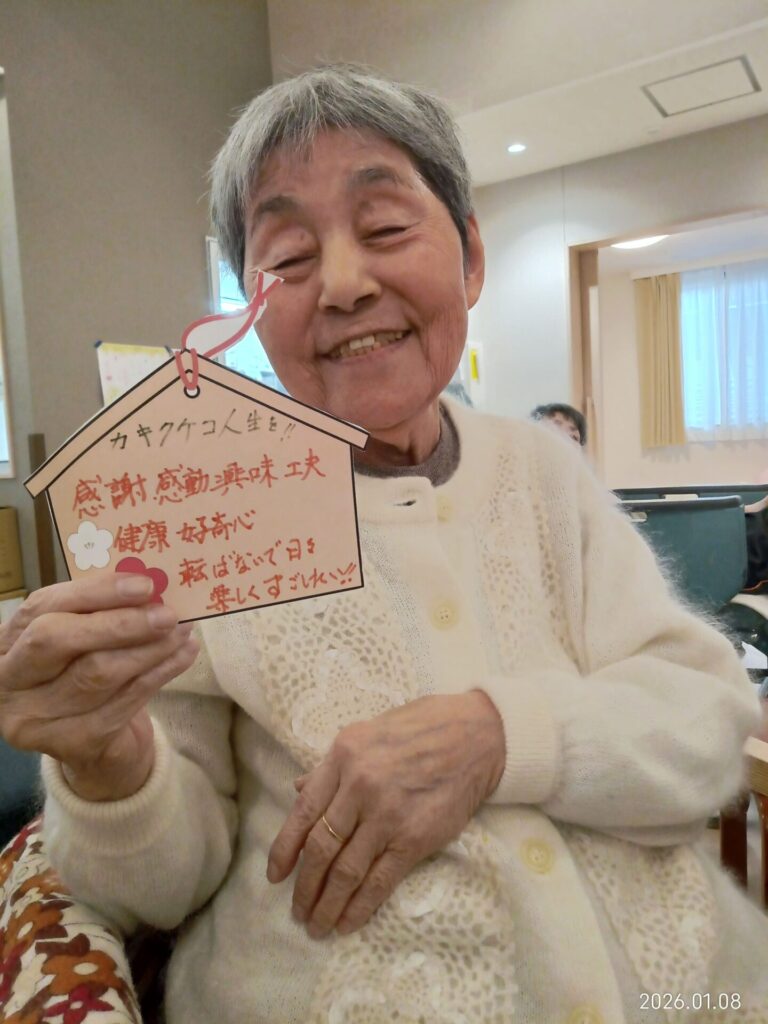 カキクケコ人生を!!
感謝 感動 興味 工夫
健康 好奇心
転ばないで日を
楽しくすごしたい!!
2026.01.08